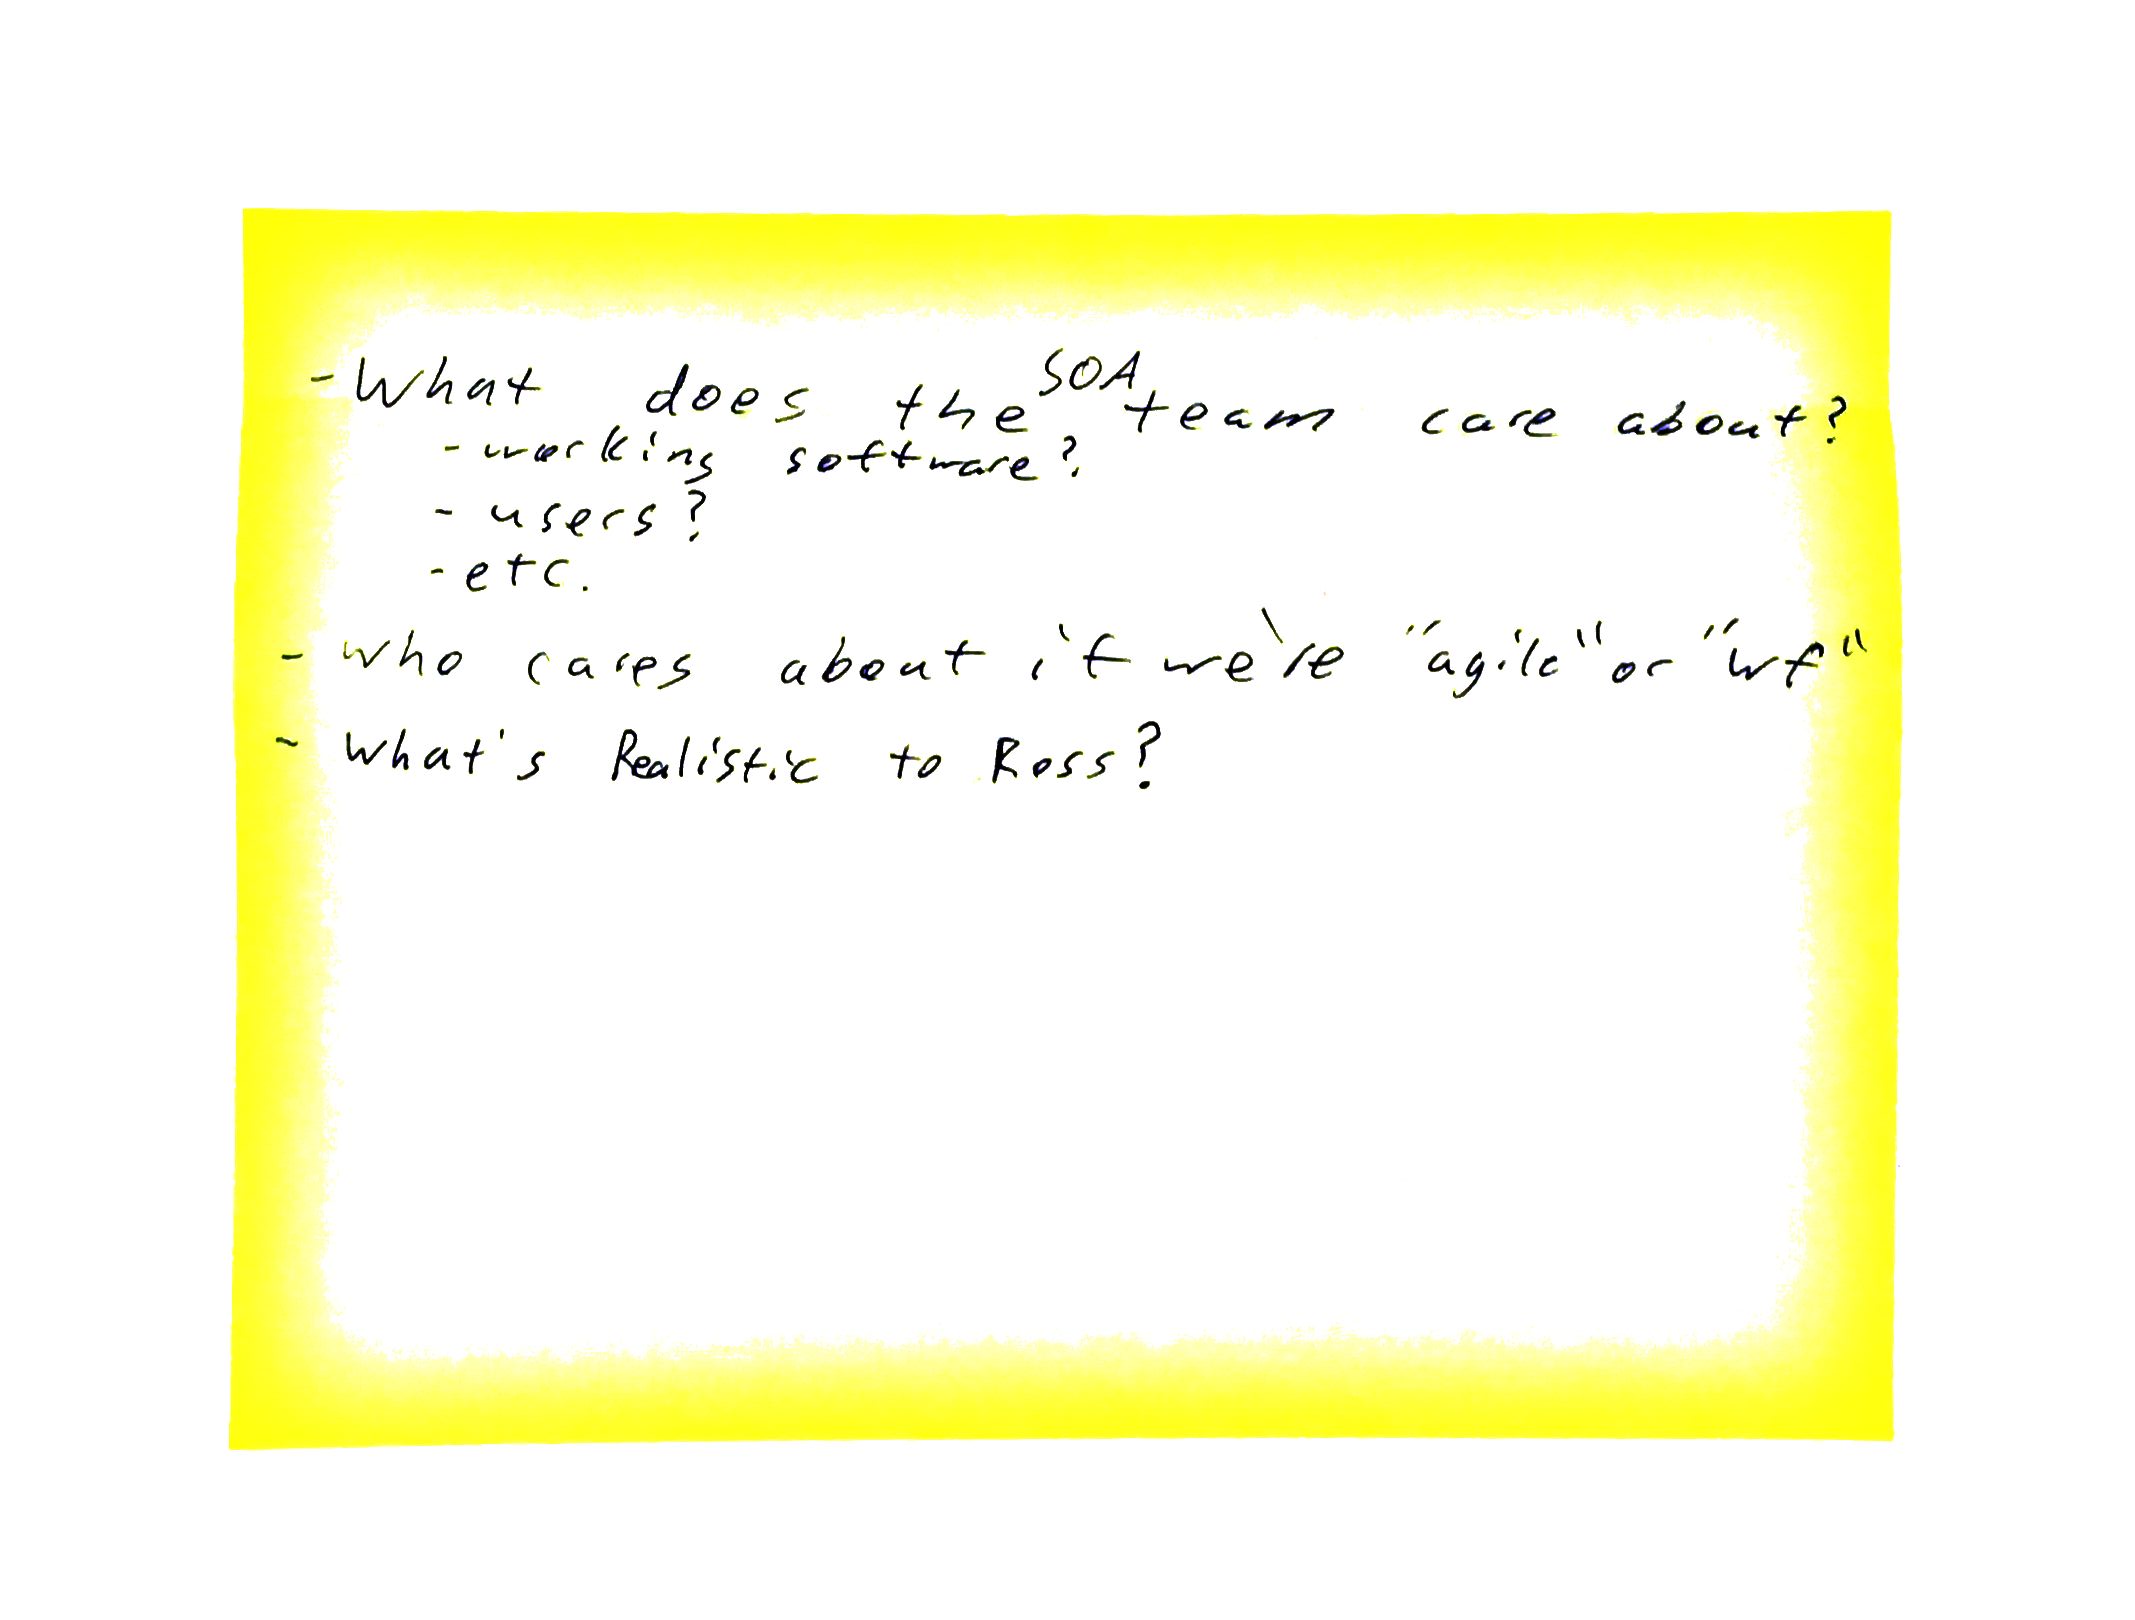 - What does the SOA team care about?
- working software?
- users?
- etc.
- who cares about if we're "agile" or "wf"
- what's Realistic to Ross?